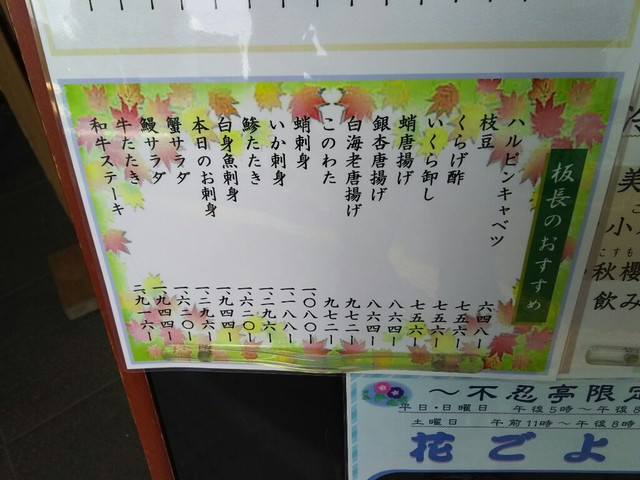 板長のおすすめ
ハルビンキャベツ 六四八ー
枝豆 七五六ー
くらげ酢 七五六ー
いくら卸し 七五六ー
蛸唐揚げ 八六四ー
銀杏唐揚げ 八六四ー
白海老唐揚げ 九七二ー
このわた 九七二ー
蛸刺身 一、〇八〇ー
いか刺身 一、一八八ー
鯵たたき 一、二九六ー
白身魚刺身 一、六二〇ー
本日のお刺身 一、九四四ー
蟹サラダ 一、二九六ー
鰻サラダ 一、六二〇ー
牛たたき 一、九四四ー
和牛ステーキ 二、九一六ー
美
小
こすも
秋櫻
飲み
〜不忍亭限定
平日・日曜日 午後5時〜午後8
土曜日 午前11時〜午後8時
花ごよ